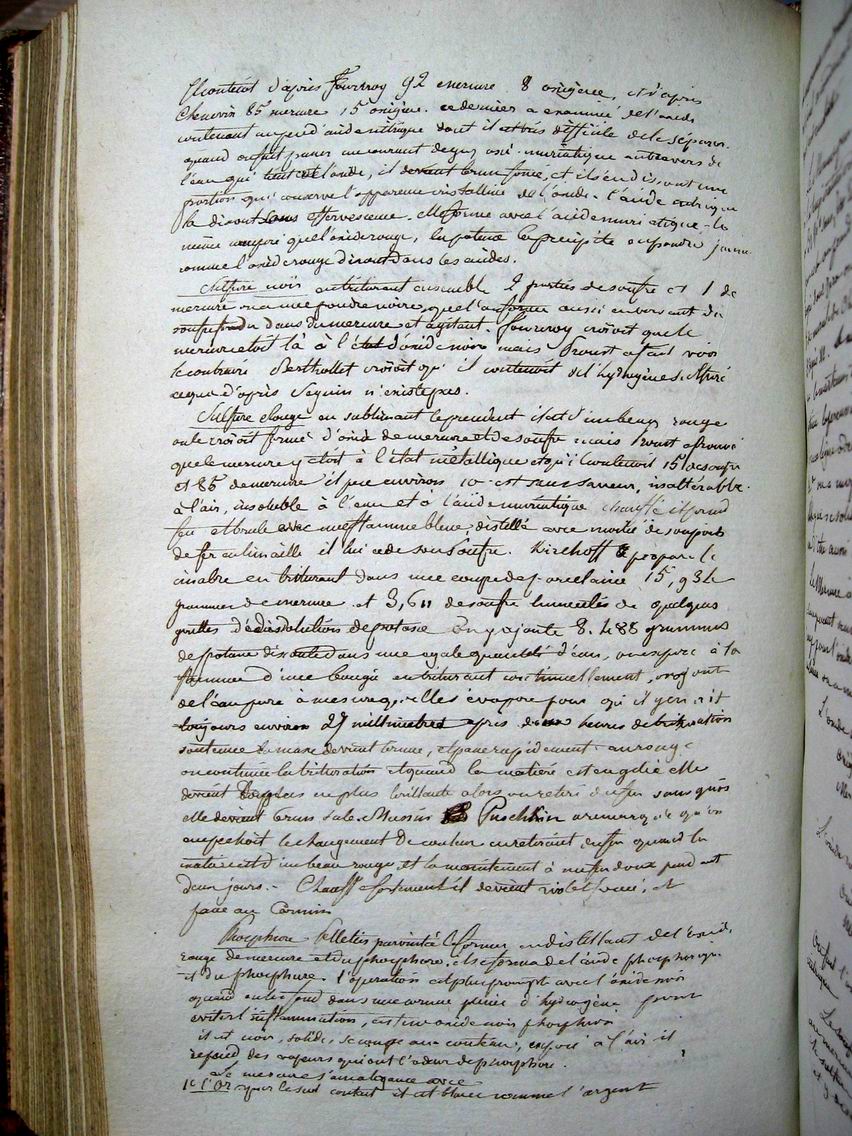 Il contient d'après Fourcroy 92 mercure 8 oxigène, et d'après
Chenevix 85 mercure 15 oxigène. ce dernier a examiné de l'oxide
contenant un peu d'acide nitrique dont il est très difficile de le séparer.
quand on fait passer un courant de gaz oxi-muriatique au travers de
l'eau qui tient de l'oxide, il devient brun foncé, et il s'en dissout une
portion qui conserve l'apparence cristalline de l'oxide. l'acide nitrique
la dissout sans effervescence. elle forme avec l'acide muriatique le
même que l'oxide rouge, la potasse le précipite en poudre jaune
comme l'oxide rouge dissout dans les acides.
Sulfure noir en triturant ensemble 2 parties de soufre et 1 de
mercure on a une poudre noire, que l'on forme aussi en versant du
soufre fondu dans du mercure et agitant. Fourcroy croioit que le
mercure étoit là à l'état d'oxide noir mais Proust a fait voir
le contraire Berthollet croioit qu'il contenoit de l'hydrogène sulfuré
ce que d'après Seguin n'existe pas.
Sulfure Rouge en sublimant le précédent il est d'un beau rouge
on le croioit formé d'oxide de mercure et de soufre mais Proust a prouvé
que le mercure y étoit à l'état métallique et qu'il contenoit 15 de soufre
et 85 de mercure il pèse environ 10 est sans saveur, inaltérable
à l'air, insoluble à l'eau et à l'acide muriatique chauffé il prend
feu et brule avec une flamme bleue, distillé avec moitié de son poids
de fer en limaille il lui cède son soufre. Kirchoff prépare le
cinabre en triturant dans une coupe de porcelaine 15,934
grammes de mercure et 3,611 de soufre humectés de quelques
gouttes de dissolution de potasse on y ajoute 8.488 grammes
de potasse dissoute dans une egale quantité d'eau, on expose à la
flamme d'une bougie en triturant continuellement, ajoutant
de l'eau pure à mesure qu'elle s'évapore pour qu'il y en ait
toujours environ 27 millimetres après deux heures de trituration
soutenue la masse devient brune, et passe rapidement au rouge
on continue la trituration et quand la matière est en gelée elle
devient de plus en plus brillante alors on retire du feu sans quoi
elle devient brun sale. Mussin Puschkin a remarqué qu'on
empechoit le changement de couleur en retirant du feu quand la
matière est d'un beau rouge, et la maintenant à un feu doux pendant
deux jours. - Chauffé fortement il devient violet foncé, et
passe au Carmin
Phosphure Pelletier parvint à le former en distillant de l'oxide
rouge de mercure et du phosphore. il se forma de l'acide phosphorique
et du phosphure. l'opération est plus prompte avec l'oxide noir
quand on les fond dans une cornue pleine d'hydrogène pour
eviter l'inflammation, c'est un oxide noir phosphoré
il est noir, solide, se coupe au couteau, exposé à l'air il
répand des vapeurs qui ont l'odeur de phosphore.
Le mercure s'amalgame avec
1° l'Or pour le peu contient il est blanc comme l'argent